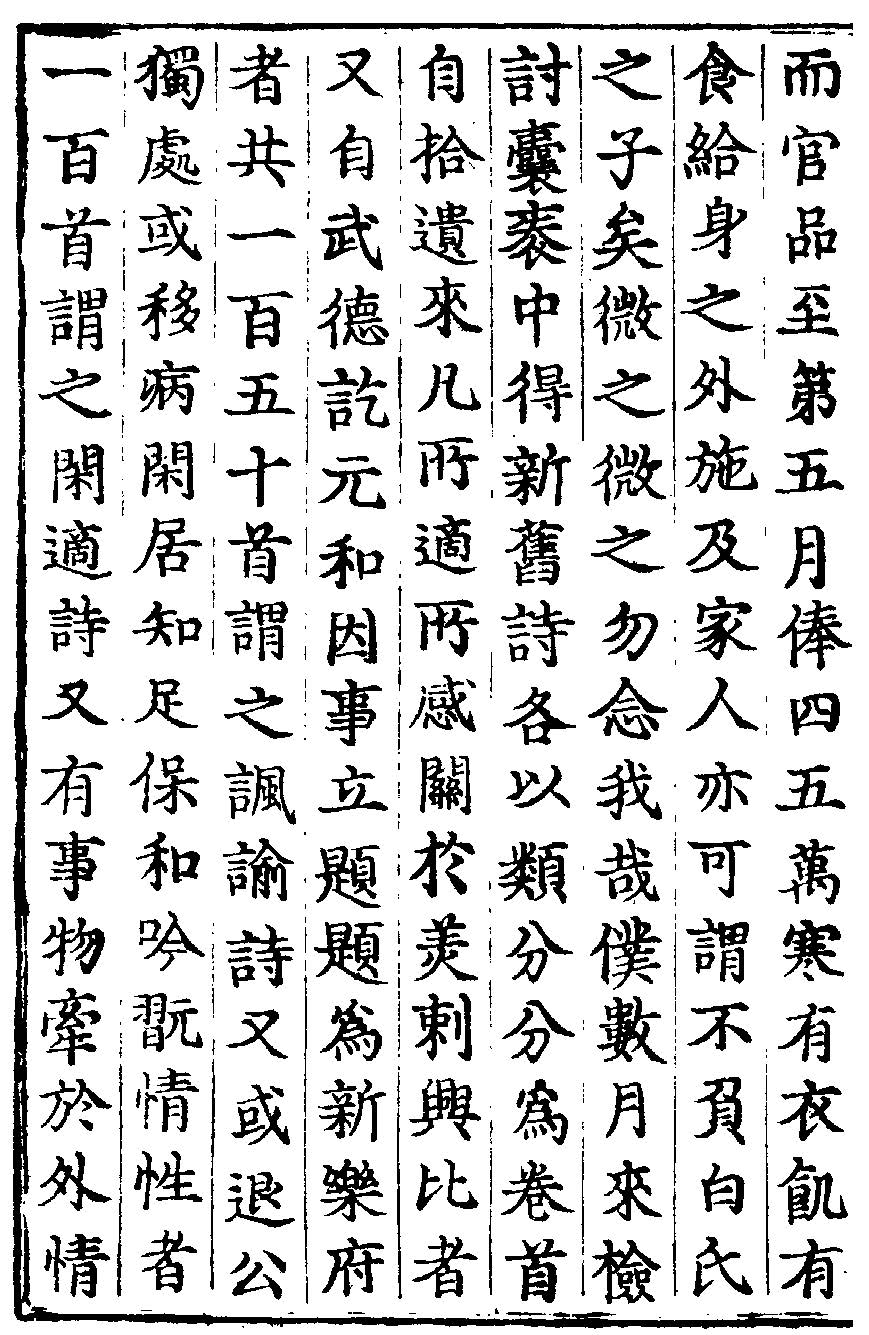 而官品至第五月俸四五萬寒有衣飢有
食給身之外施及家人亦可謂不負白氏
之子矣微之微之勿念我哉僕數月來檢
討囊袠中得新舊詩各以類分分爲卷首
自拾遺來凡所適所感關於美刺興比者
又自武德訖元和因事立題題爲新樂府
者共一百五十首謂之諷諭詩又或退公
獨處或移病閑居知足保和吟翫情性者
一百首謂之閑適詩又有事物牽於外情